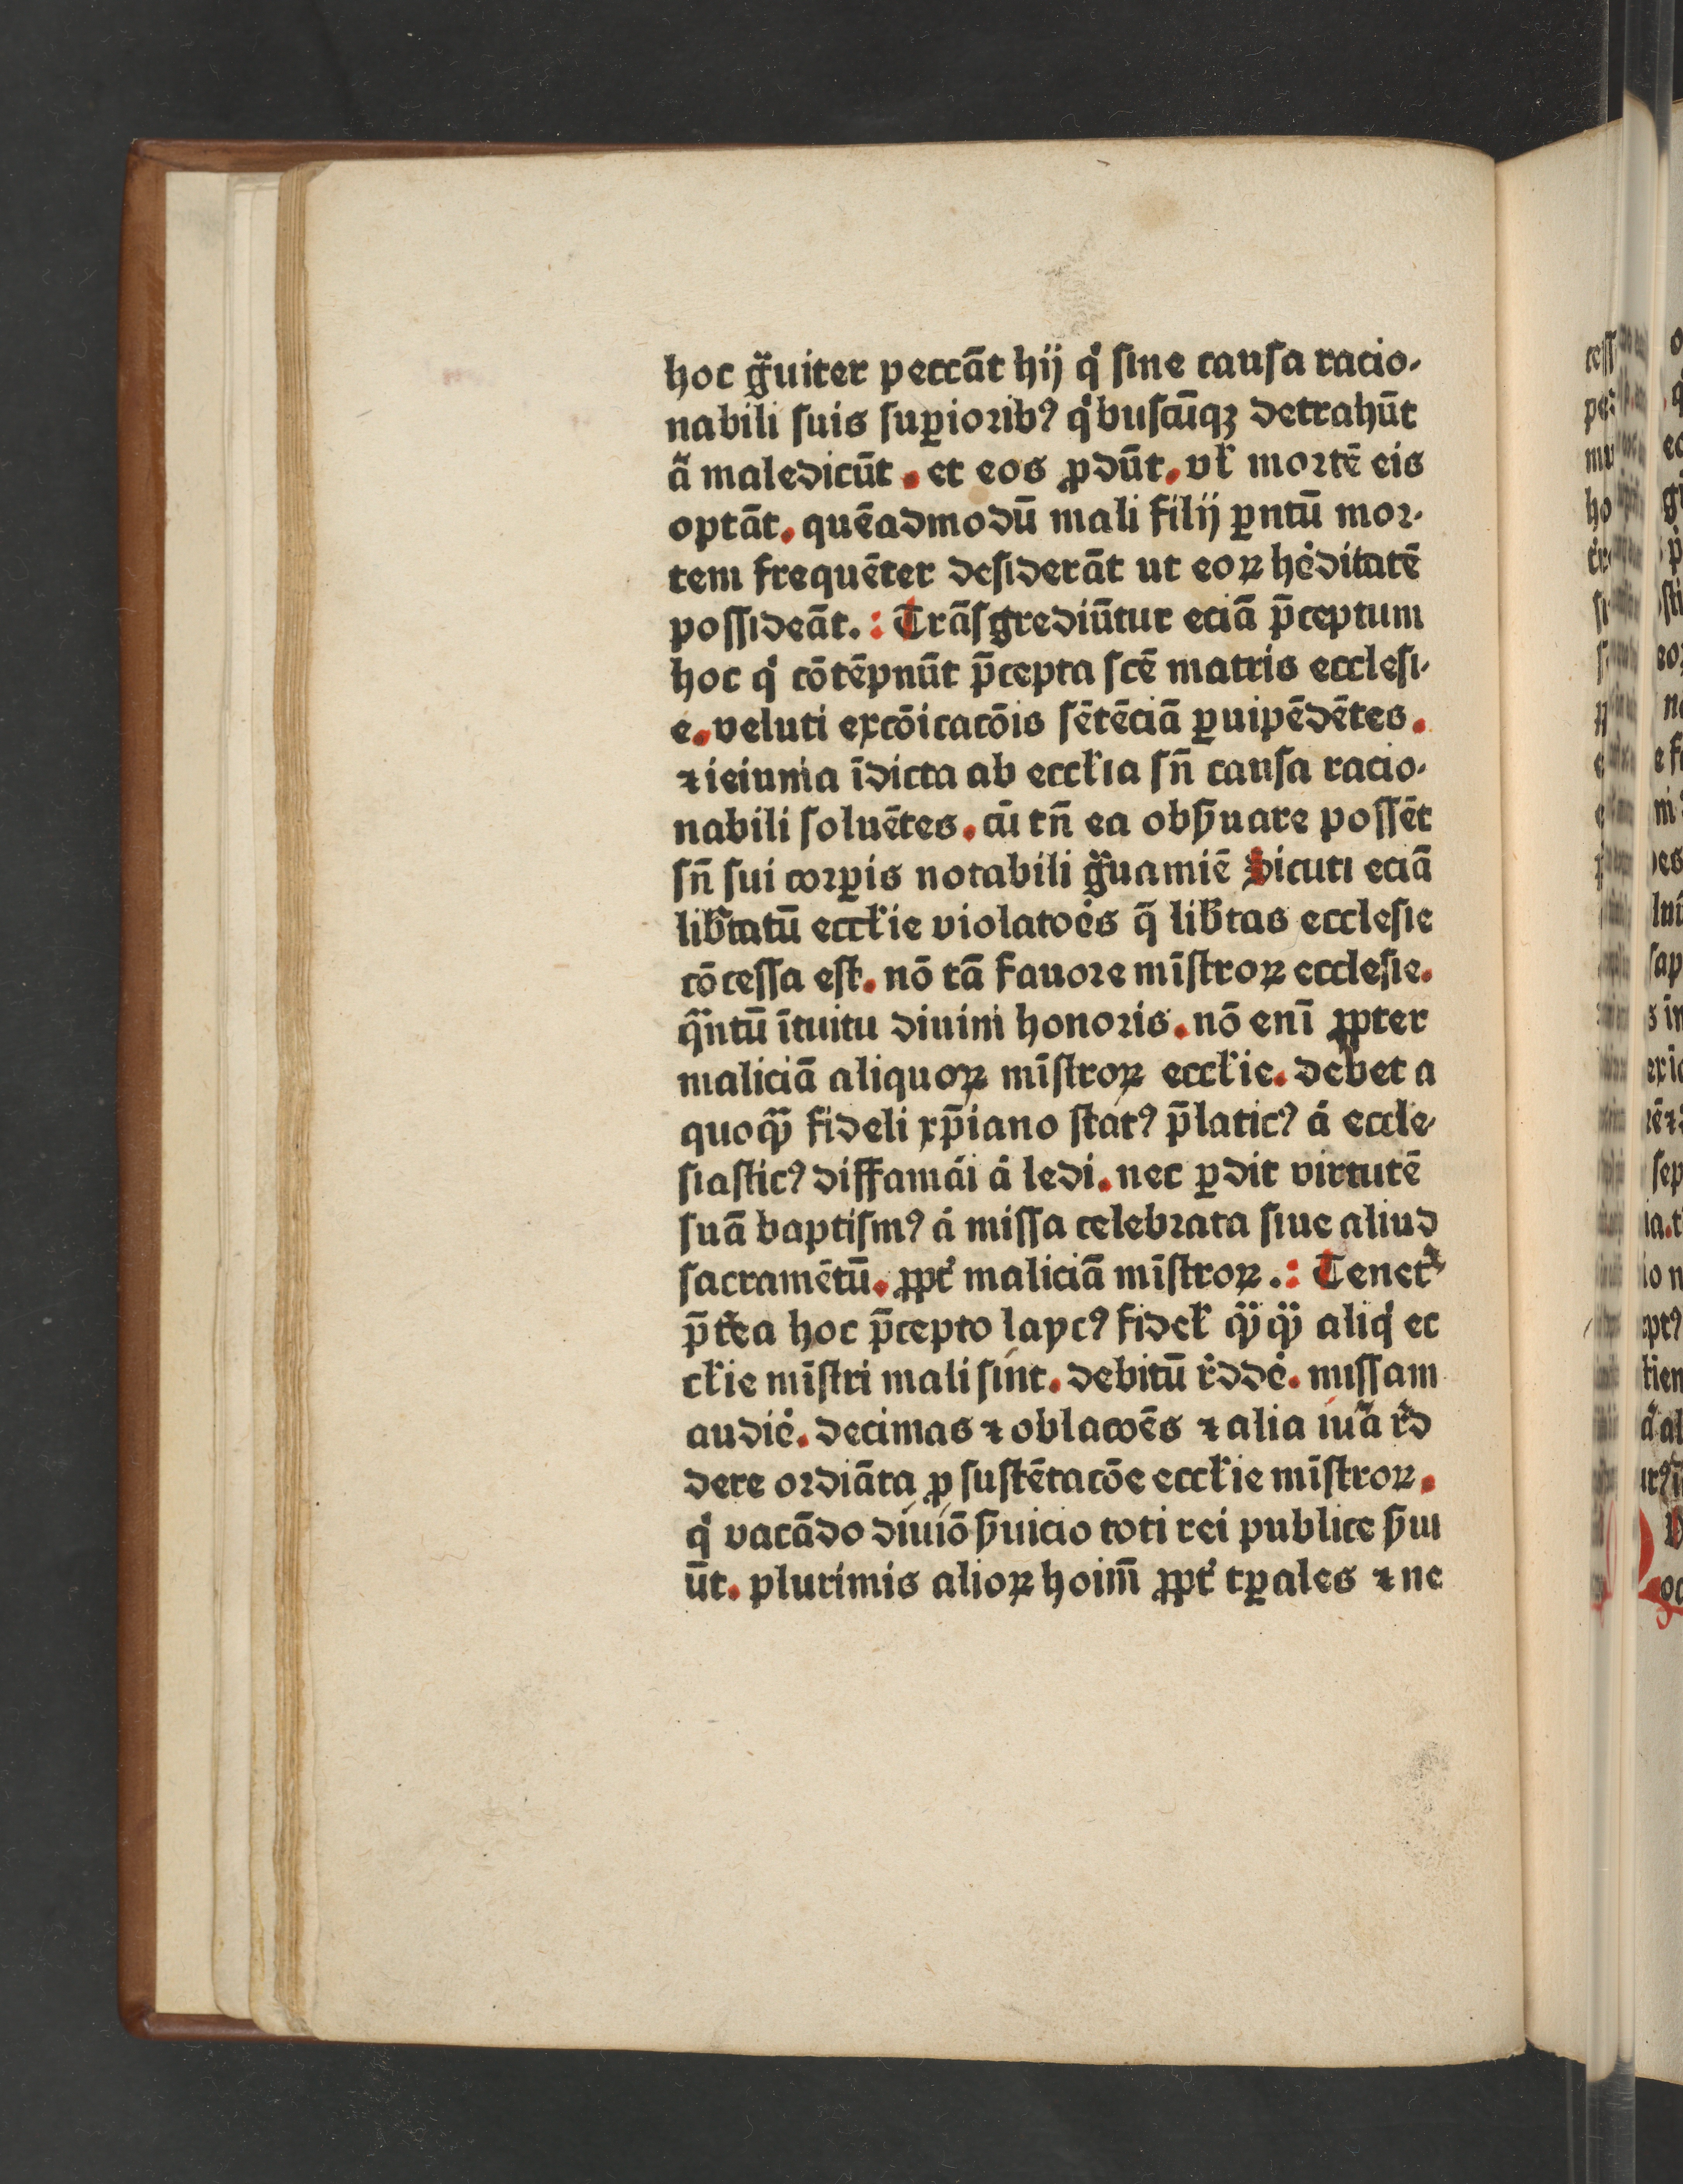 hoc gᷓuiter peccāt hij qͥ ſine cauſa racio⸗
nabili suis ſuꝑioribꝰ qͥbuſcūqꝫ detrahūt
aͣ maledicūt . et eos ꝓdūt . vƚ mortē eis
optāt . quēadmodū mali filij ꝑntū mor⸗
tem frequēter deſiderāt ut eoꝝ he͛ditatē
poſſideāt . : Trāſgrediūtur eciā p̄ceptum
hoc qͥ cōtēpnūt p̄cepta ſcē matris eccleſi⸗
e . veluti excōicacōis ſētēciā ꝑuipēdētes .
⁊ ieiunia īdicta ab eccƚia ſn̄ cauſa racio⸗
nabili ſoluētes . cū tn̄ ea obẜuare poſſēt
ſn̄ ſui corꝑis notabili gᷓuamiē Sicuti eciā
lib͛tatū eccƚie violatoe͛s q̄ lib͛tas eccleſie
cōceſſa eſt . nō tā fauore mīſtroꝝ eccleſie .
qᷓntū ītuitu diuini honoris . nō enī ꝓpter
maliciā aliquoꝝ mīſtroꝝ eccƚie . debet a
quoqᷓ fideli xp̄iano ſtatꝰ p̄laticꝰ a͛ eccle⸗
ſiaſticꝰ diffama͛i a͛ ledi . nec ꝑdit virtutē
ſuā baptiſmꝰ a͛ miſſa celebrata ſiue aliud
ſacramētū . ꝓpt͛ maliciā mīſtroꝝ . : Tenet᷑
p̄t͛ea hoc p̄cepto laycꝰ fideƚ qᷓqᷓ aliqͥ ec
cƚie mīſtri mali ſint . debitū r͛dde͛ . miſſam
audie͛ . decimas ⁊ oblacōēs ⁊ alia iuᷓa r͛d
dere ordiāta ꝓ ſuſtētacōe eccƚie mīſtroꝝ .
qͥ vacādo diuiō ẜuicio toti rei publice ẜui
ūt . plurimis alioꝝ hoim̄ ꝓpt͛ tꝑales ⁊ ne